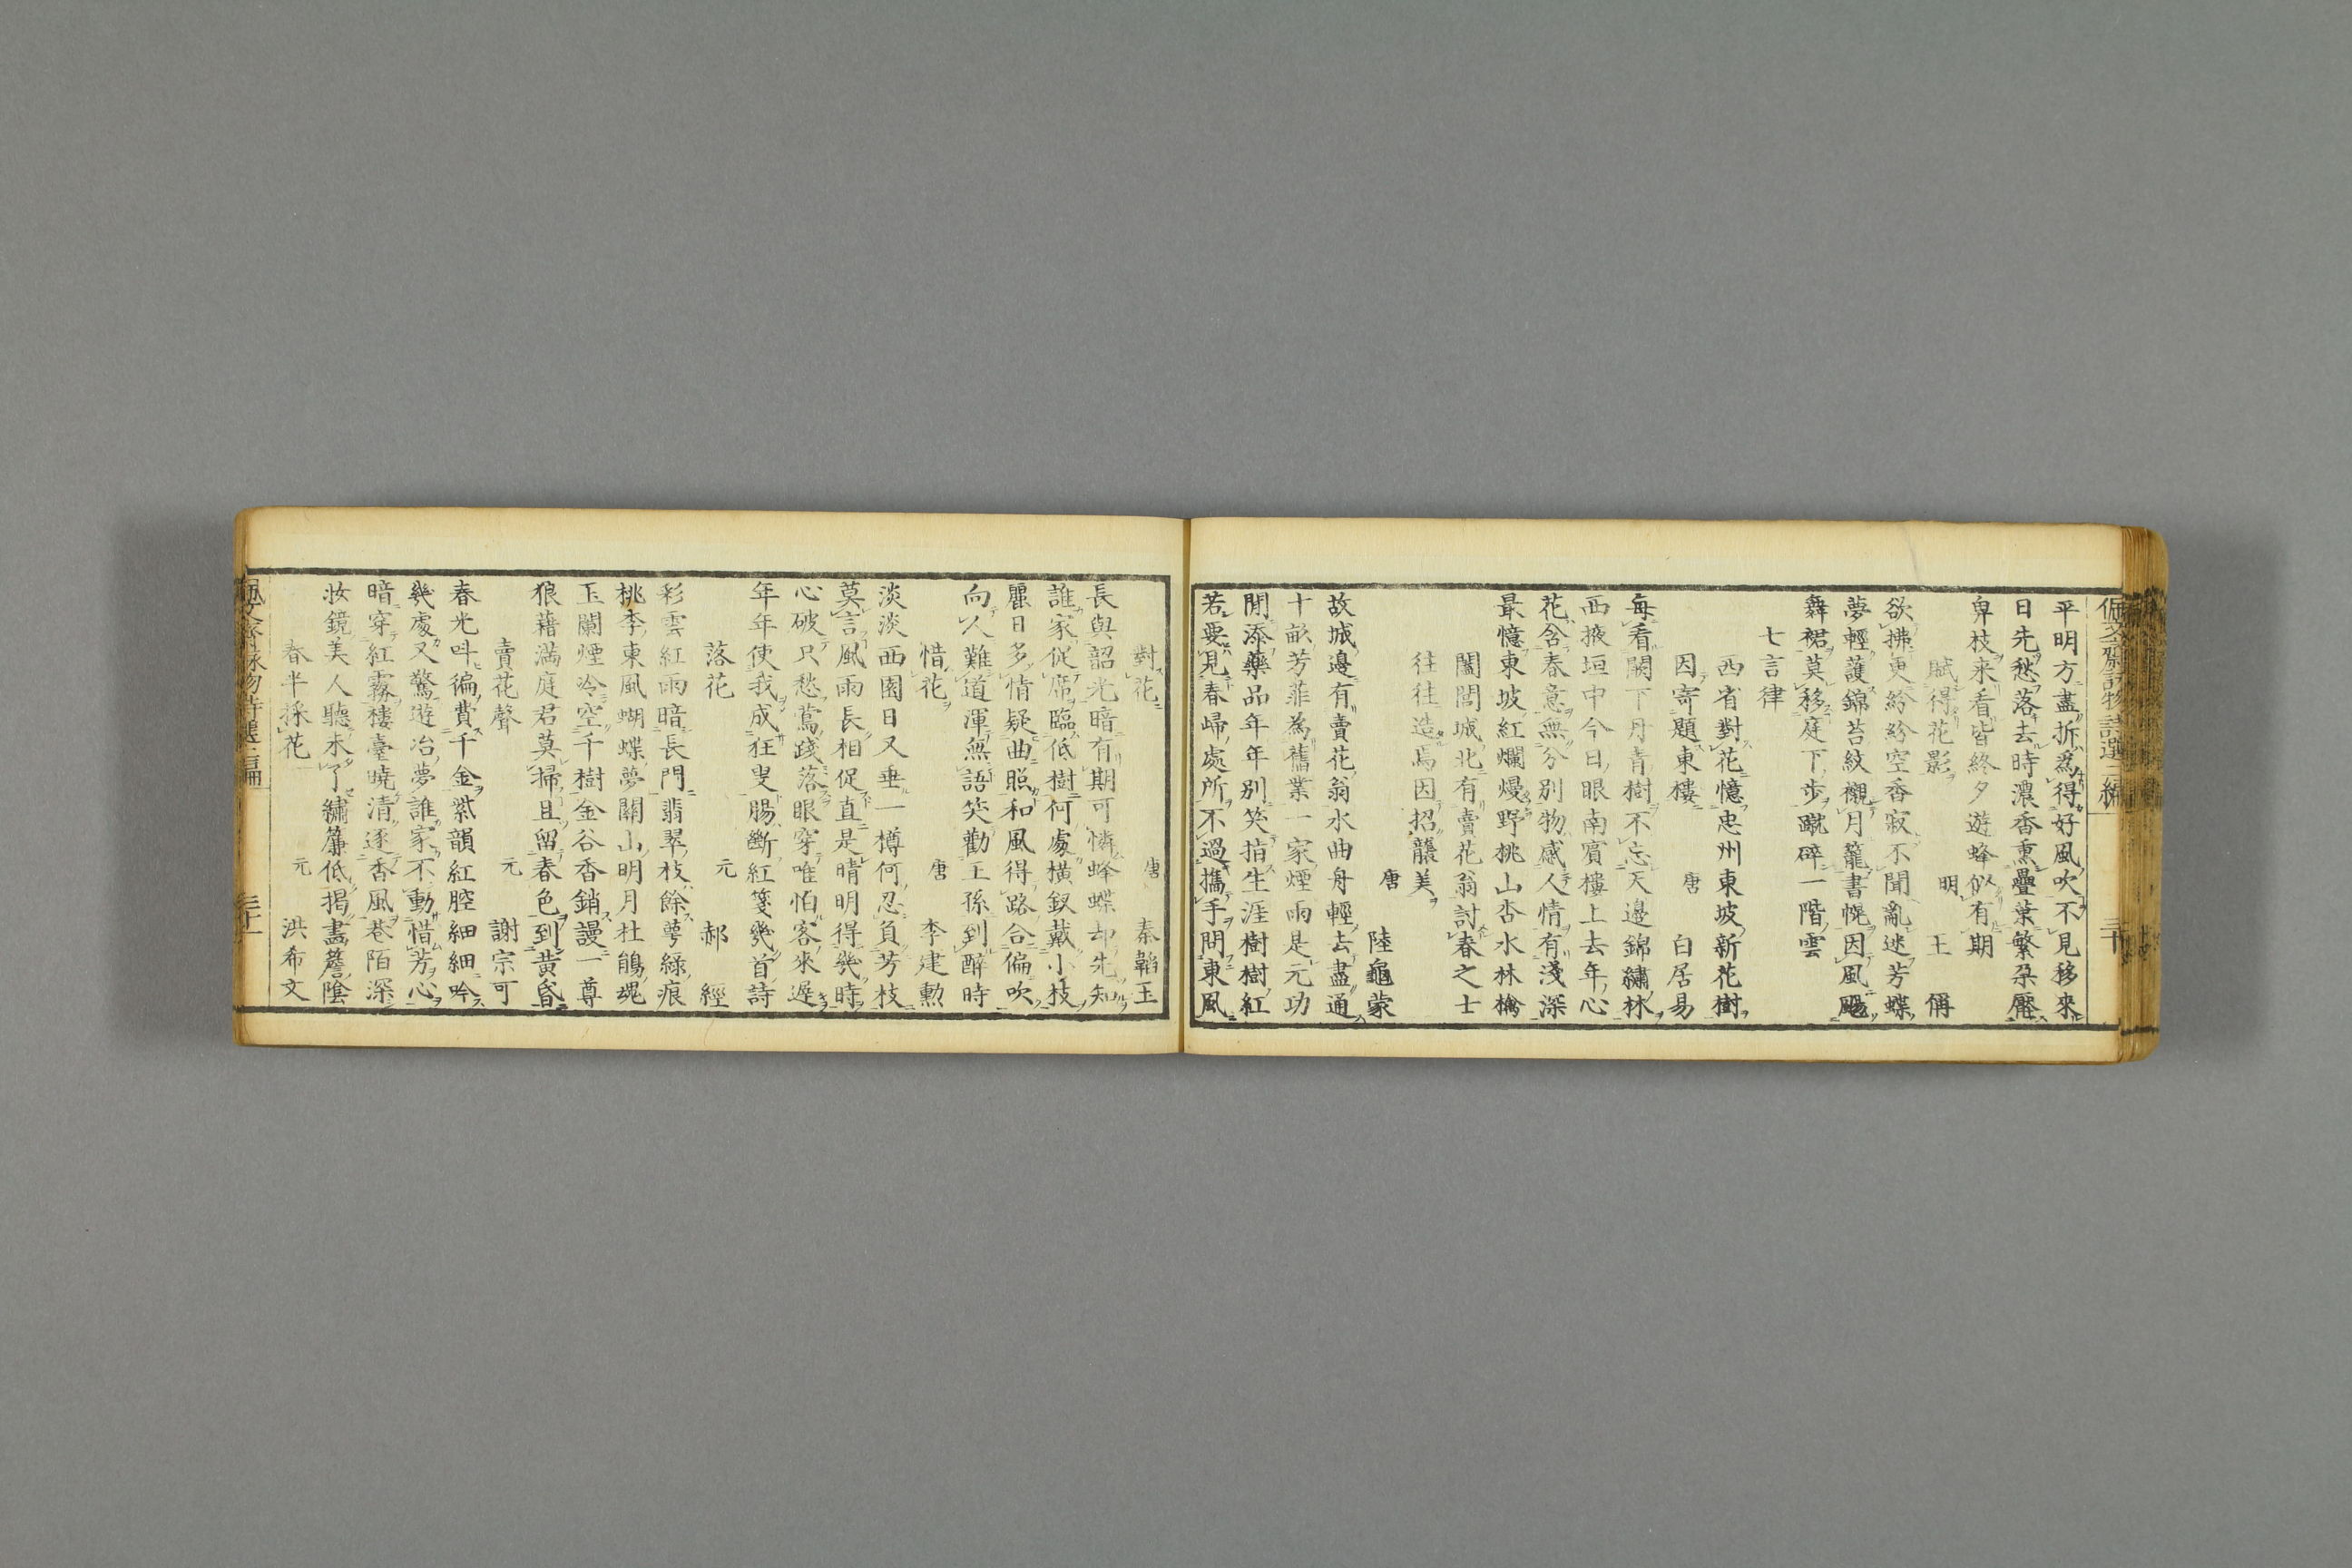 佩文齋詠物詩選二編 三十
平明方盡拆爲得好風吹不見移來
日先愁落去時濃香熏疊葉繁朶壓
卑枝来看皆終夕遊蜂似有期
賦得花影 明 王 偁
欲拂更紛紛空香寂不聞亂迷芳蝶
夢輕護錦苔紋襯月籠書幌因風颺
舞裙莫移庭下步蹴碎一階雲
七言律
西省對花憶忠州東坡新花樹
因寄題東樓 唐 白居易
每看闕下丹青樹不忘天邊錦繡林
西掖垣中今日眼南賓樓上去年心
花含春意無分別物感人情有淺深
最憶東坡紅爛熳野桃山杏水林檎
闔閭城北有賣花翁討春之士
往往造焉因招襲美
唐 陸龜蒙
故城邊有賣花翁水曲舟輕去盡通
十畝芳菲為舊業一家煙雨是元功
閒添藥品年年別笑指生涯樹樹紅
若要見春歸處所不過攜手問東風
對花 唐 秦韜玉
長與韶光暗有期可憐蜂蝶却先知
誰家促席臨低樹何處橫釵戴小枝
麗日多情疑曲照和風得路合偏吹
向人難道渾無語笑勸王孫到醉時
惜花 唐 李建勲
淡淡西園日又垂一樽何忍負芳枝
莫言風雨長相促直是晴明得幾時
心破只愁鶯踐落眼穿唯怕客來遲
年年使我成狂叟腸斷紅箋幾首詩
落花 元 郝 經
彩雲紅雨暗長門翡翠枝餘萼綠痕
桃李東風蝴蝶夢關山明月杜鵑魂
玉闌煙冷空千樹金谷香銷謾一尊
狼藉満庭君莫掃且留春色到黄昏
賣花聲 元 謝宗可
春光叫徧費千金紫韻紅腔細細吟
幾處又驚遊冶夢誰家不動惜芳心
暗穿紅霧樓臺曉清逐香風巷陌深
妝鏡美人聽未了繡簾低揭畫簷陰
春半採花 元 洪希文
佩文齋詠物詩選二編 三十一